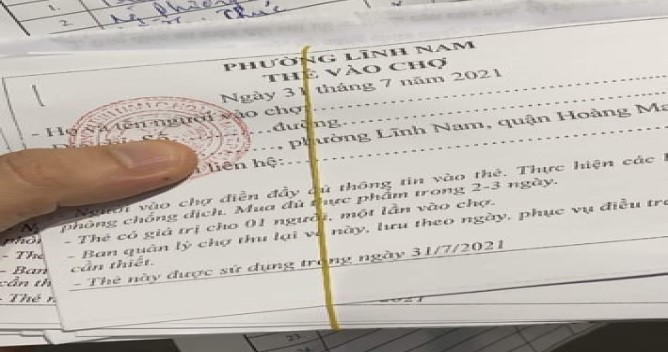 1.
2.
PHƯỜNG LĨNH NAM
THẺ VÀO CHỢ
Ngày 31 tháng 7 năm 2021
- Họ và tên người vào chợ:
đường
, phường Lĩnh Nam, quận Hoàng Ma
liên hệ:
Người vào chợ điền đầy đủ thông tin vào thẻ. Thực hiện các
phòng chống dịch. Mua đủ thực phẩm trong 2-3 ngày.
- Thẻ có giá trị cho 01 người, một lần vào chợ.
- Ban quản lý chợ thu lại vé này, lưu theo ngày, phục vụ điều tra
cần thiết.
- Thẻ này được sử dụng trong ngày 31/7/2021
- The
- Ban
cần th
- Thẻ n
2021
23.